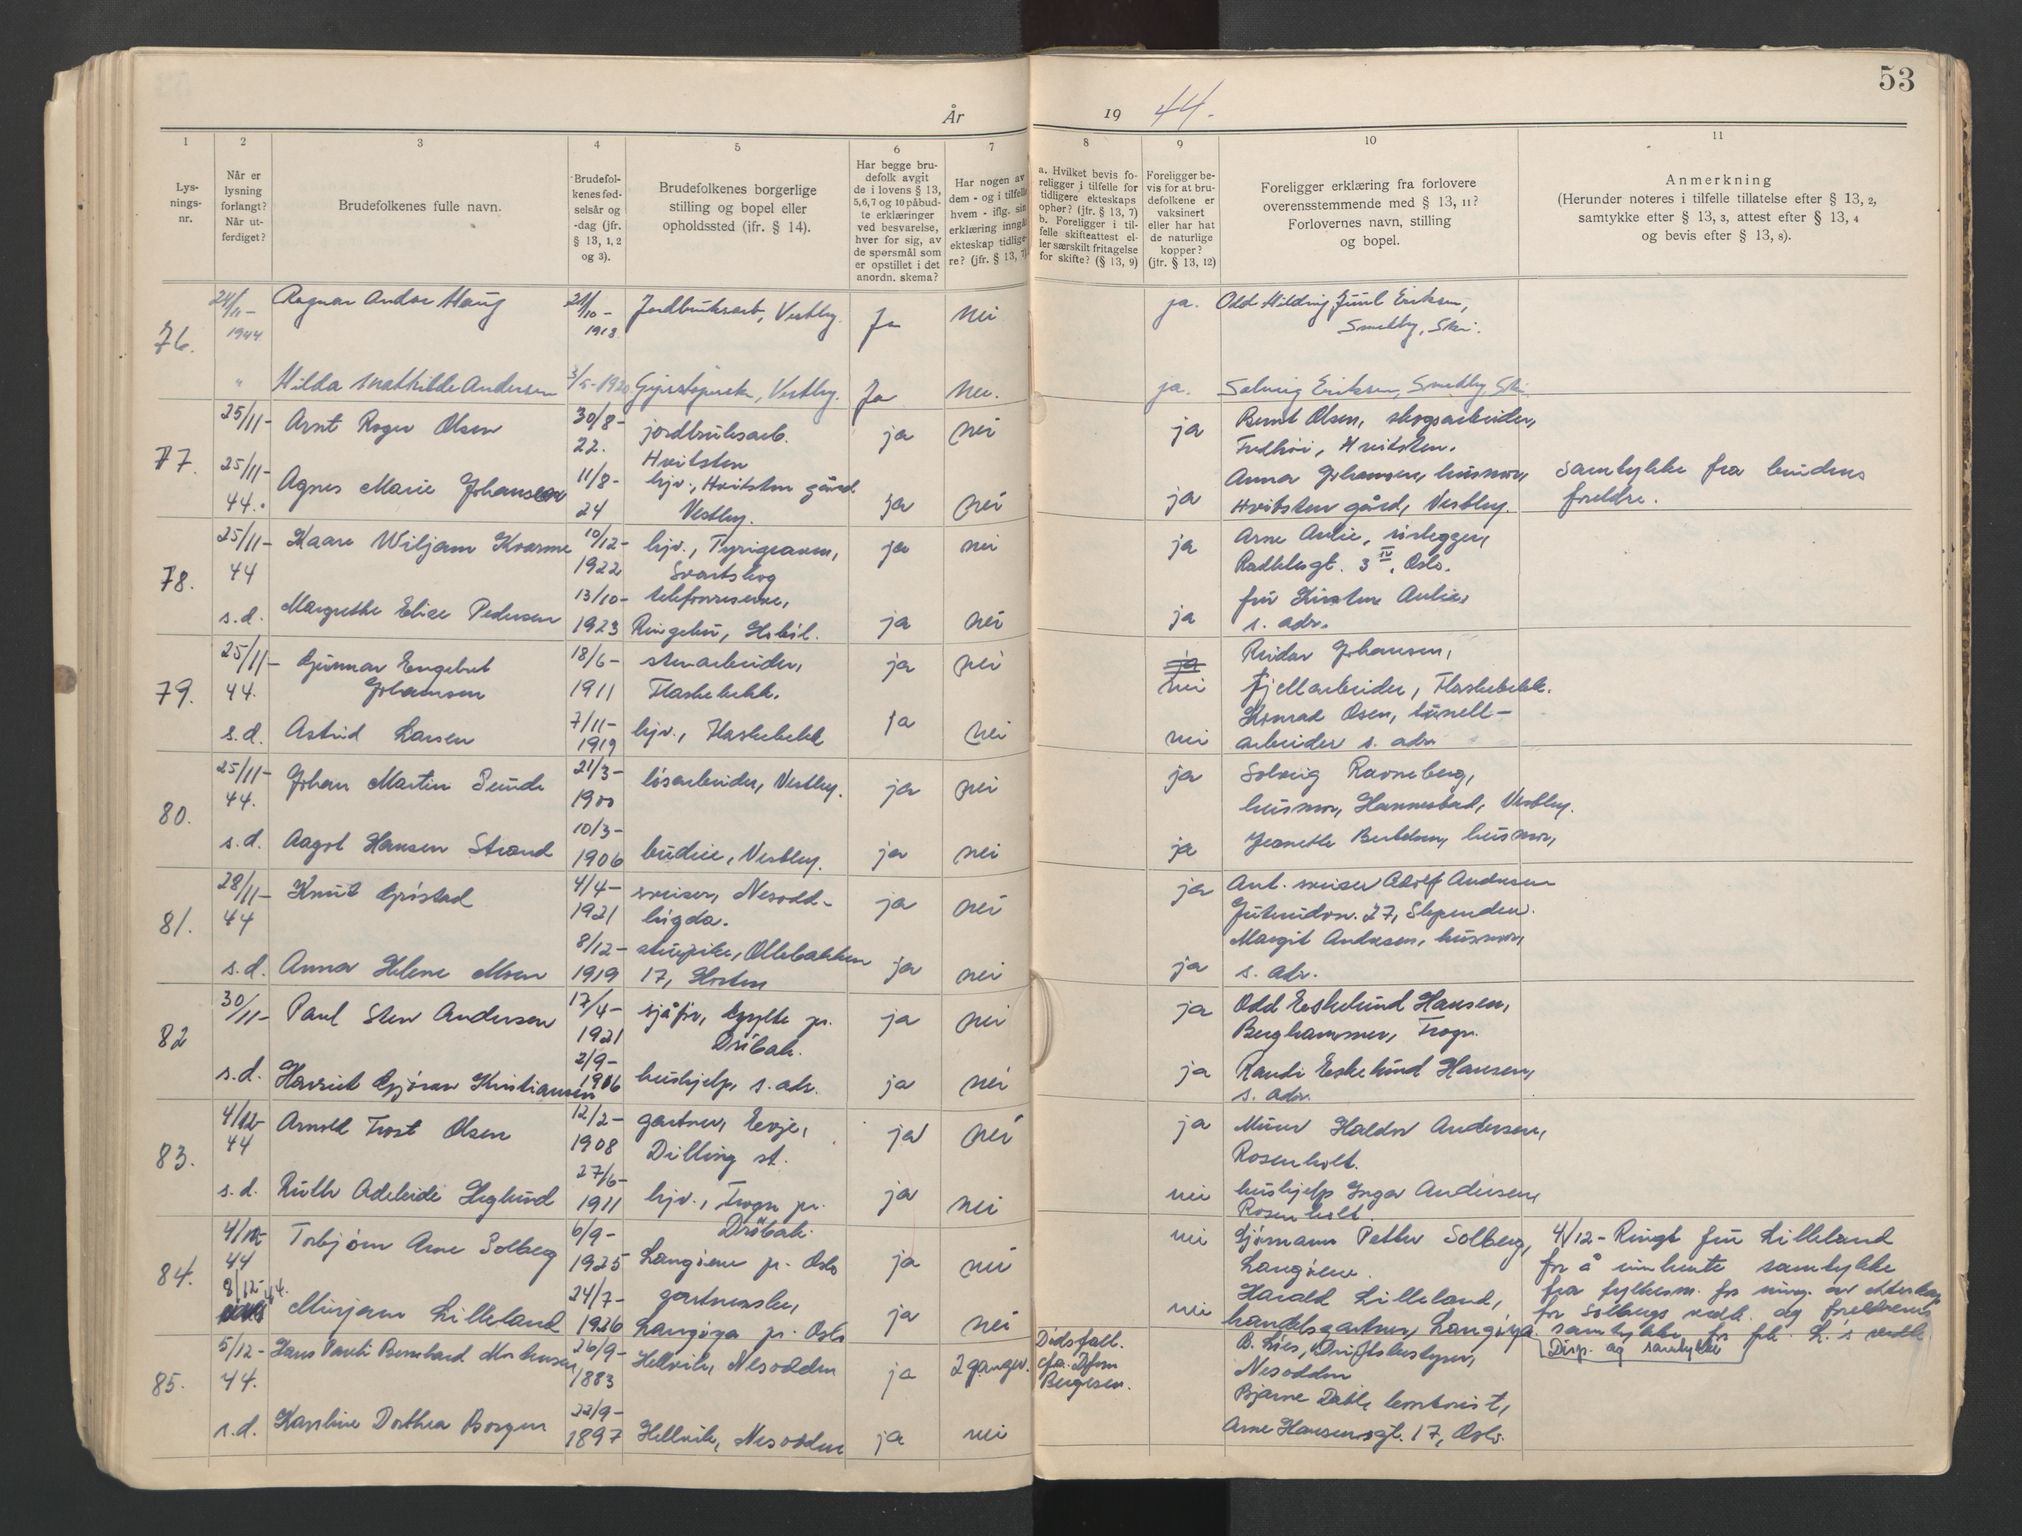 53
År 19 44.
1 2 3 4 5 6 7 8 9 10 11
Lys-
nings-
nr.
Når er
lysning
forlangt?
Når ut-
ferdiget?
Brudefolkenes fulle navn.
Brudefol-
kenes fød-
selsår og
-dag (jfr.
§ 13, 1, 2
og 3).
Brudefolkenes borgerlige
stilling og bopel eller
opholdssted (ifr. § 14).
Har begge bru-
defolk avgit
de i lovens § 13,
5,6,7 og 10 påbud-
te erklæringer
ved besvarelse,
hver for sig, av
de spørsmål som
er opstillet i det
anordn. skema?
Har nogen av
dem - og i tilfelle
hvem - iflg. sin
erklæring inngått
ekteskap tidlige-
re? (jfr. § 13, 7).
a. Hvilket bevis fo-
religger i tilfelle for
tidligere ekteskaps
ophør? (jfr. § 13, 7)
b. Foreligger i til-
felle skifteattest el-
ler særskilt fritagelse
for skifte? (§ 13, 9)
Foreligger be-
vis for at bru-
defolkene er
vaksinert
eller har hat
de naturlige
kopper?
(jfr. § 13, 12)
Foreligger erklæring fra forlovere
overensstemmende med § 13, 11?
Forlovernes navn, stilling
og bopel.
Anmerkning
(Herunder noteres i tilfelle tillatelse efter § 13, 2,
samtykke efter § 13, 3, attest efter § 13, 4
og bevis efter § 13, 8).
76.
24/11-
1944
Ragnar Andor Haug
21/10-
1913
Jordbruksarb, Vestby.
Ja
Nei
ja.
Odd Hilding Juul Eriksen,
Smedby, Ski.
"
Hilda Mathilde Andersen
3/5-1920
Vestby.
Ja
Nei.
ja.
Solveig Eriksen, Smedby, Ski.
77.
25/11-
Arnt Roger Olsen
30/8-
22.
jordbruksarb.
Hvitsten
ja
nei
ja
Bernt Olsen, skogsarbeider,
Fredhøi, Hvitsten.
25/11-
44.
Agnes Marie Johansen
11/8-
24
hjv., Hvitsten gård
Vestby.
ja
nei
ja
Anna Johansen, husmor,
Hvitsten gård, Vestby.
Samtykke fra brudens
foreldre.
78.
25/11-
44
Kaare Wiljam Kvarme
10/12-
1922
hjv., Tyrigraven,
Svartskog
ja
nei
ja
Arne Aulie, rørlegger,
3 IV, Oslo.
s.d.
Margrethe Elise Pedersen
13/10-
1923
Ringebu, Hobøl.
ja
nei
ja
fru Kirsten Aulie,
s. adr.
79.
25/11-
44.
Gunnar Engebret
Johansen
18/6-
1911
stenarbeider,
Flaskebekk.
ja
nei
ja
nei
Reidar Johansen,
fjellarbeider, Flaskebekk.
s.d.
Astrid Larsen
7/11-
1919
hjv., Flaskebekk
ja
nei
nei
Konrad Osen, tunell-
arbeider s. adr.
80.
25/11-
44.
Johan Martin
21/3-
1900
løsarbeider, Vestby.
ja
nei
ja
Solveig Ravneberg,
husmor, Hannestad, Vestby.
s.d.
Aagot Hansen Strand
10/3-
1906
budeie, Vestby.
ja
nei
ja
Jeanette Bertelsen, husmor,
81.
28/11-
44
Knut Gjøstad
4/4-
1921
sveiser, Nesodd-
bygda.
ja
nei
ja
Aut. sveiser Adolf Andersen
27, Slependen.
s.d.
Anna Helene Moen
8/12-
1919
stuepike, Ollebakken
17, Horten
ja
nei
ja
Margit Andersen, husmor,
s. adr.
82
30/11-
Paul Sten Andersen
17/4-
1921
sjåfør, Gylte pr.
Drøbak.
ja
nei
ja
Odd Eskelund Hansen,
Berghammer, Frogn.
s.d.
Harriet Gjøran Kristiansen
2/9-
1916
hushjelp, s. adr.
ja
nei
ja
Randi Eskelund Hansen,
s. adr.
83.
4/12-
44
Arnold Frost Olsen
12/2-
1908
gartner, Evje,
Dilling st.
ja
nei
ja
Murer Haldor Andersen,
Rosenholt.
s.d.
Ruth Adeleide Heglund
27/6-
1911
hjv., Frogn pr.
Drøbak.
ja
nei
nei
hushjelp Inga Andersen,
Rosenholt.
84.
4/12-
44
Torbjørn Arne Solberg
6/9-
1925
Langøene pr. Oslo
ja
nei
nei
Gjørmann Petter Solberg,
Langøene.
4/12- Ringt fru Lilleland
for å innhente samtykke
8/12-44.
Mirjam Lilleland
24/7-
1926
gartnerske,
Langøya pr. Oslo
ja
nei
nei
Harald Lilleland,
handelsgartner, Langøya.
for Solbergs vedk. og foreldrenes
samtykke for frk. L.'s vedk.
Disp. og samtykke
85.
5/12-
44.
Hans Pauli Bernhard Morkensen
26/9-
1883
Hellvik, Nesodden
ja
2 ganger.
Dødsfall.
Bergesen.
B. Lies, Driftsbestyrer,
Nesodden
s.d.
Karoline Dorthea Borgen
22/9-
1897
Hellvik, Nesodden
ja
nei
Bjarne Dahl, kontorist,
Arne Hansensgt. 17, Oslo.